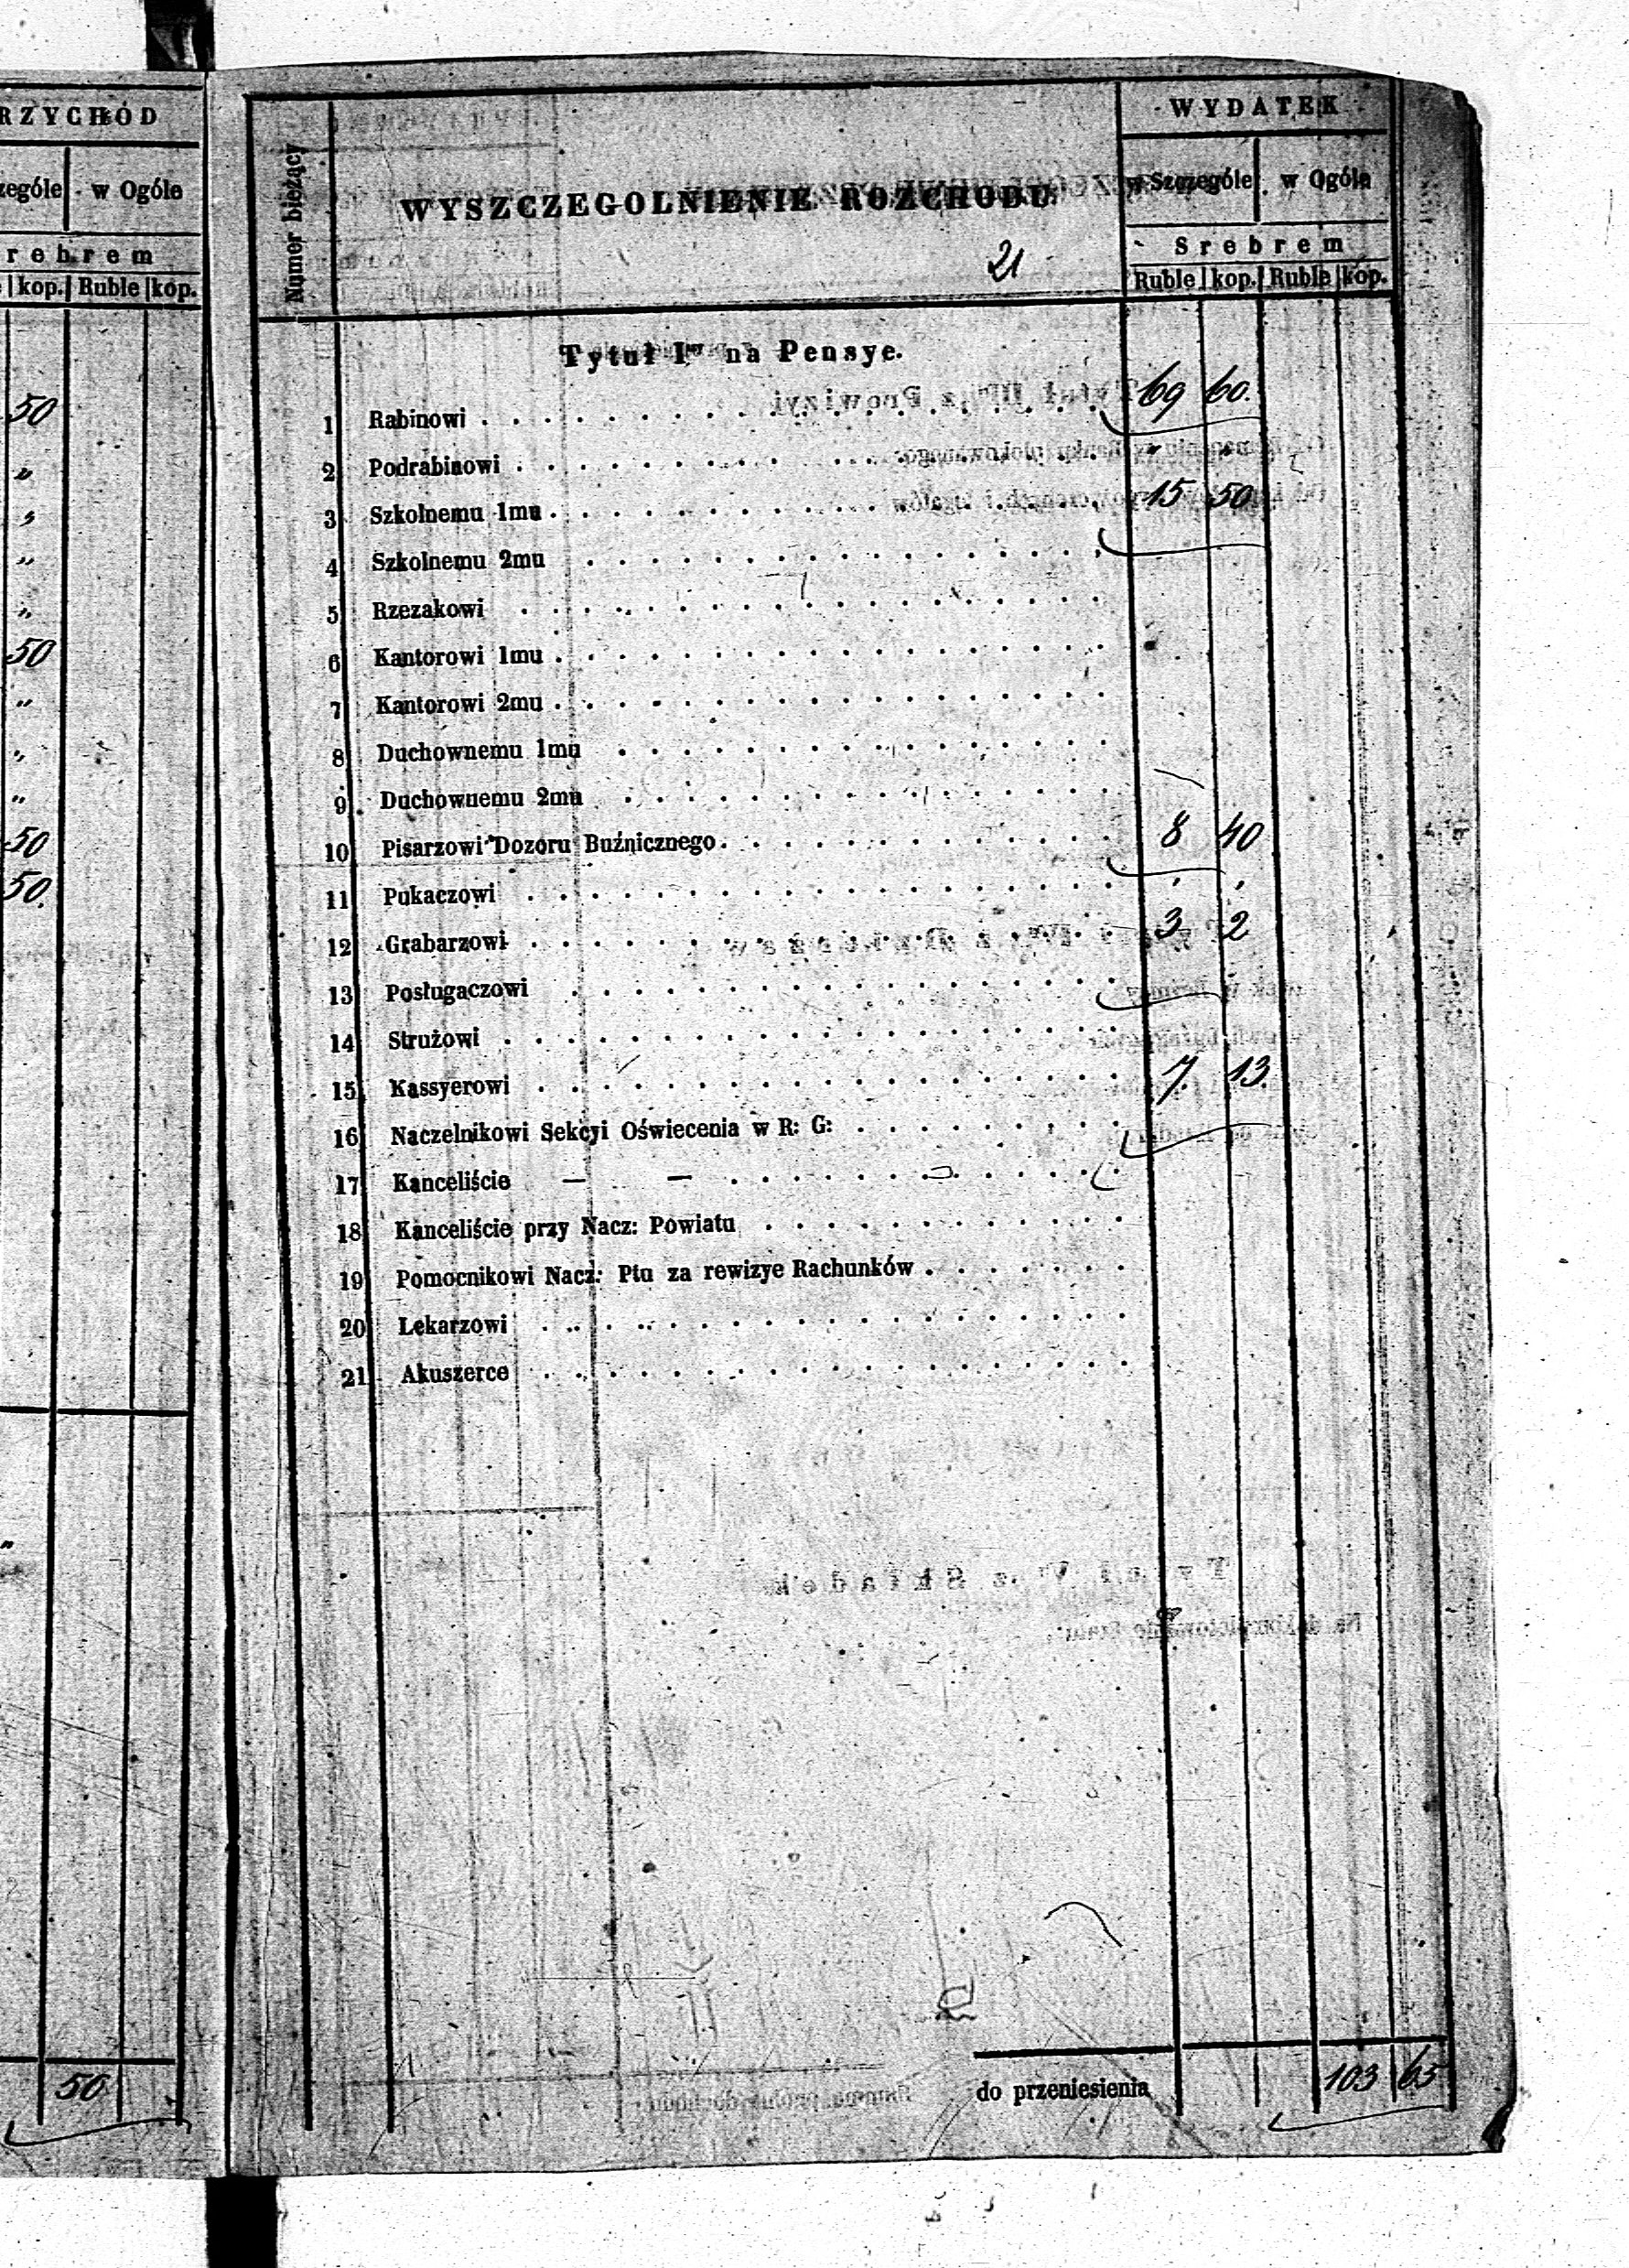 RZYCHÓD
zególe w Ogóle
rebrem
kop. Ruble kop.
50
"
"
"
"
50
"
"
"
50
50.
"
50
Numer bieżący
WYSZCZEGOLNIENIE ROZCHODU
21
WYDATEK
w Szczególe w Ogóle
Srebrem
Ruble kop. Ruble kop.
Tytuł I na Pensye.
1 Rabinowi . . . 69 60.
2 Podrabinowi . . . " "
3 Szkolnemu 1mu . . . 15 50
4 Szkolnemu 2mu . . .
5 Rzezakowi . . .
6 Kantorowi 1mu . . .
7 Kantorowi 2mu . . .
8 Duchownemu 1mu . . .
9 Duchownemu 2mu . . .
10 Pisarzowi Dozoru Buźnicznego . . . 8 40
11 Pukaczowi . . . " "
12 Grabarzowi . . . 3 2
13 Posługaczowi . . .
14 Strużowi . . .
15 Kassyerowi . . . 7. 13.
16 Naczelnikowi Sekcyi Oświecenia w R: G: . . .
17 Kanceliście — — . . .
18 Kanceliście przy Nacz: Powiatu . . .
19 Pomocnikowi Nacz: Ptu za rewizye Rachunków . . .
20 Lekarzowi . . .
21 Akuszerce . . .
do przeniesienia 103 65